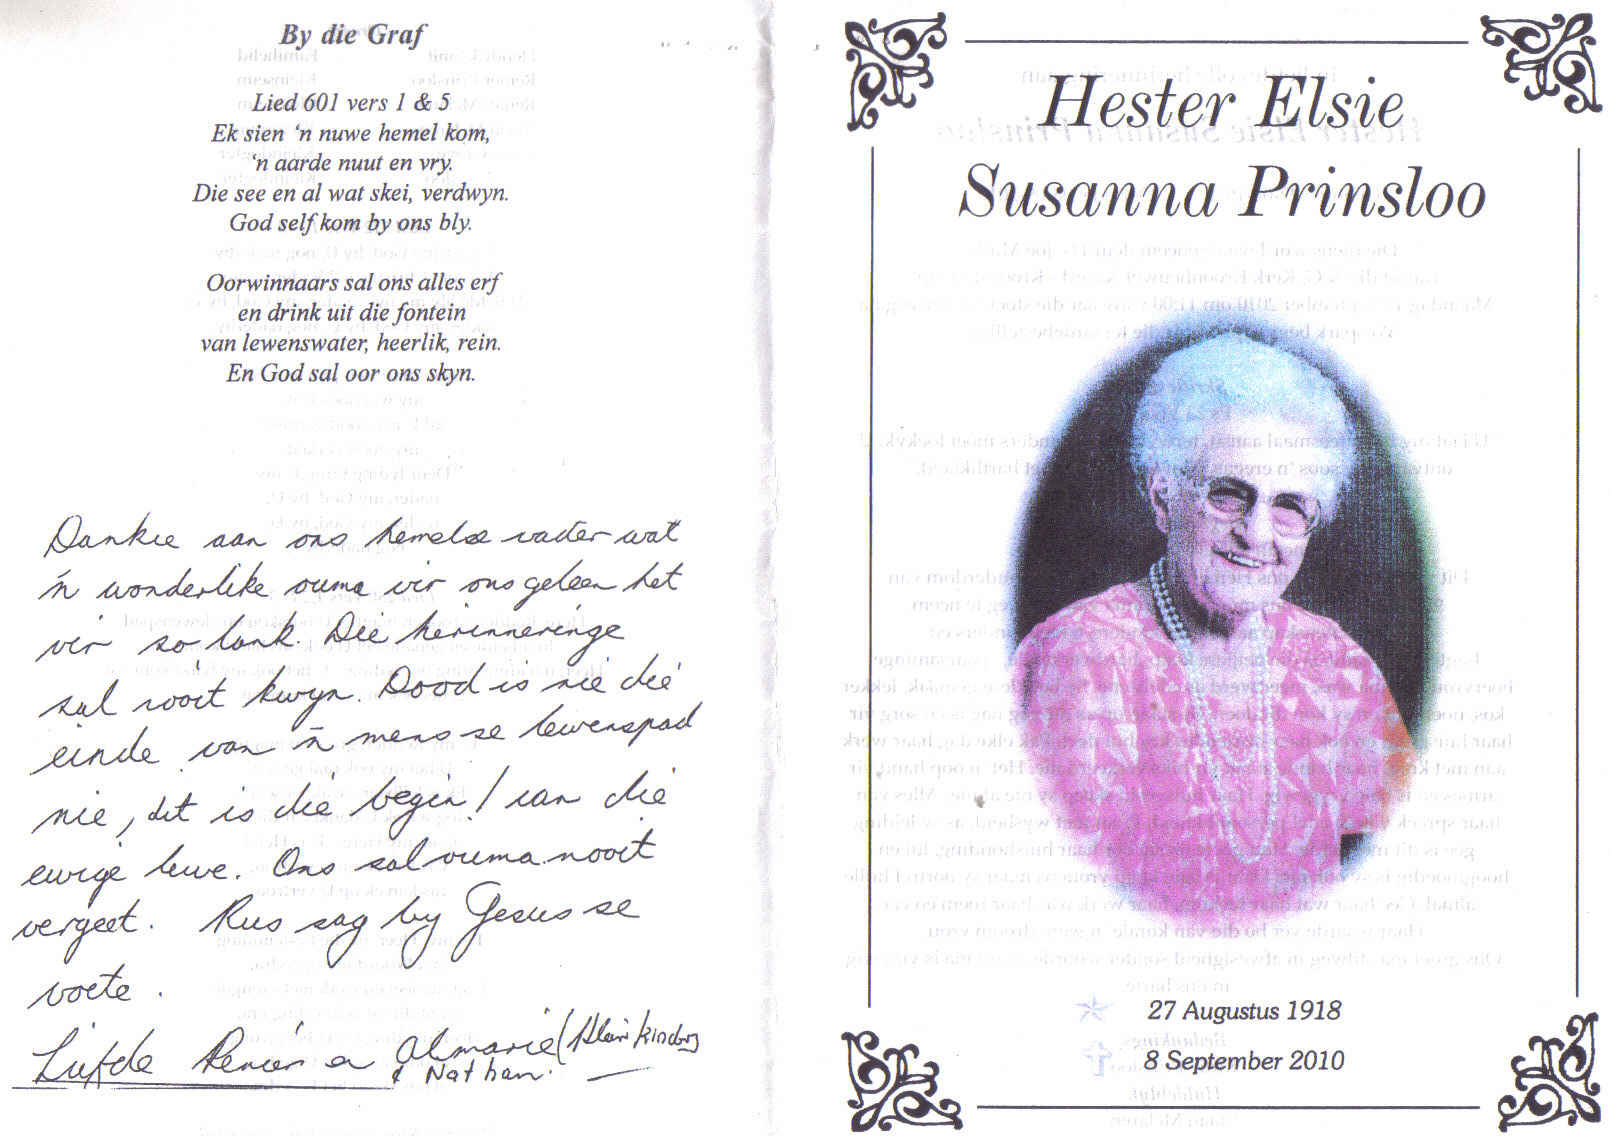 By die Graf
Lied 601 vers 1 & 5
Ek sien ‘n nuwe hemel kom,
‘n aarde nuut en vry.
Die see en al wat skei, verdwyn.
God self kom by ons bly.
Oorwinnaars sal ons alles erf
en drink uit die fontein
van lewenswater, heerlik, rein.
En God sal oor ons skyn.
Dankie aan ons hemelse vader wat
'n wonderlike ouma vir ons geleen het
vir so lank. Die herinneringe
sal nooit kwyn. Dood is nie die
einde van 'n mens se lewenspad
nie, dit is die begin! van die
ewige lewe. Ons sal ouma nooit
vergeet. Rus sag by Jesus se
voete.
Liefde Almarie (Kleinkinders
& Nathan.
Hester Elsie
Susanna Prinsloo
27 Augustus 1918
8 September 2010